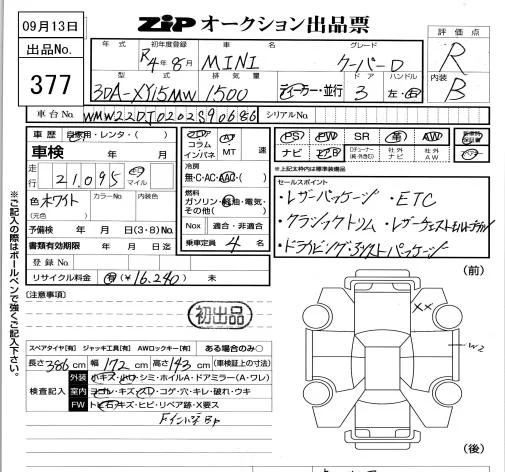 09月13日
ZIP オークション出品票
評価点
R
出品No.
377
年式 初年度登録 車名 グレード
R4年8月 MINI クーパーD
内装
B
型式 排気量 ドア ハンドル
3DA-XY15MW 1500 ディーラー・並行 3 左・右
車台No. WMW22DJ0202S90686 シリアルNo.
車歴 自家用・レンタ・( )
車検 年 月
走行 21,095 km マイル
色 ホワイト カラーNo. 内装色
(元色)
予備検 年 月 日(3・B)No.
書類有効期限 年 月 日迄
登録No.
リサイクル料金 有(¥16,240) 未
フロア コラム インパネ AT・MT 速
冷房
無・C・AC・AAC・( )
燃料
ガソリン・軽油・電気・
その他( )
Nox 適合・非適合
乗車定員 4 名
PS PW SR 革 AW
ナビ エアB TV(チューナー純・社外含) 社外ナビ 社外AW
※上記太枠内は標準装備品
セールスポイント
・レザーパッケージ ・ETC
・クラシックトリム
・ドライビング・アシストパッケージ
※ご記入の際はボールペンで強くご記入下さい。
[注意事項]
初出品
スペアタイヤ[有] ジャッキ工具[有] AWロックキー[有] ある場合のみ○
長さ 386 cm 幅 172 cm 高さ 143 cm (車検証上の寸法)
検査記入
外装 小キズ・小凹・シミ・ホイルA・ドアミラー(A・ワレ)
室内 ヨゴレ・キズ・スレ・コゲ・穴・キレ・破れ・ウキ
FW トビ石・キズ・ヒビ・リペア跡・X要ス
(前)
XX
W2
(後)